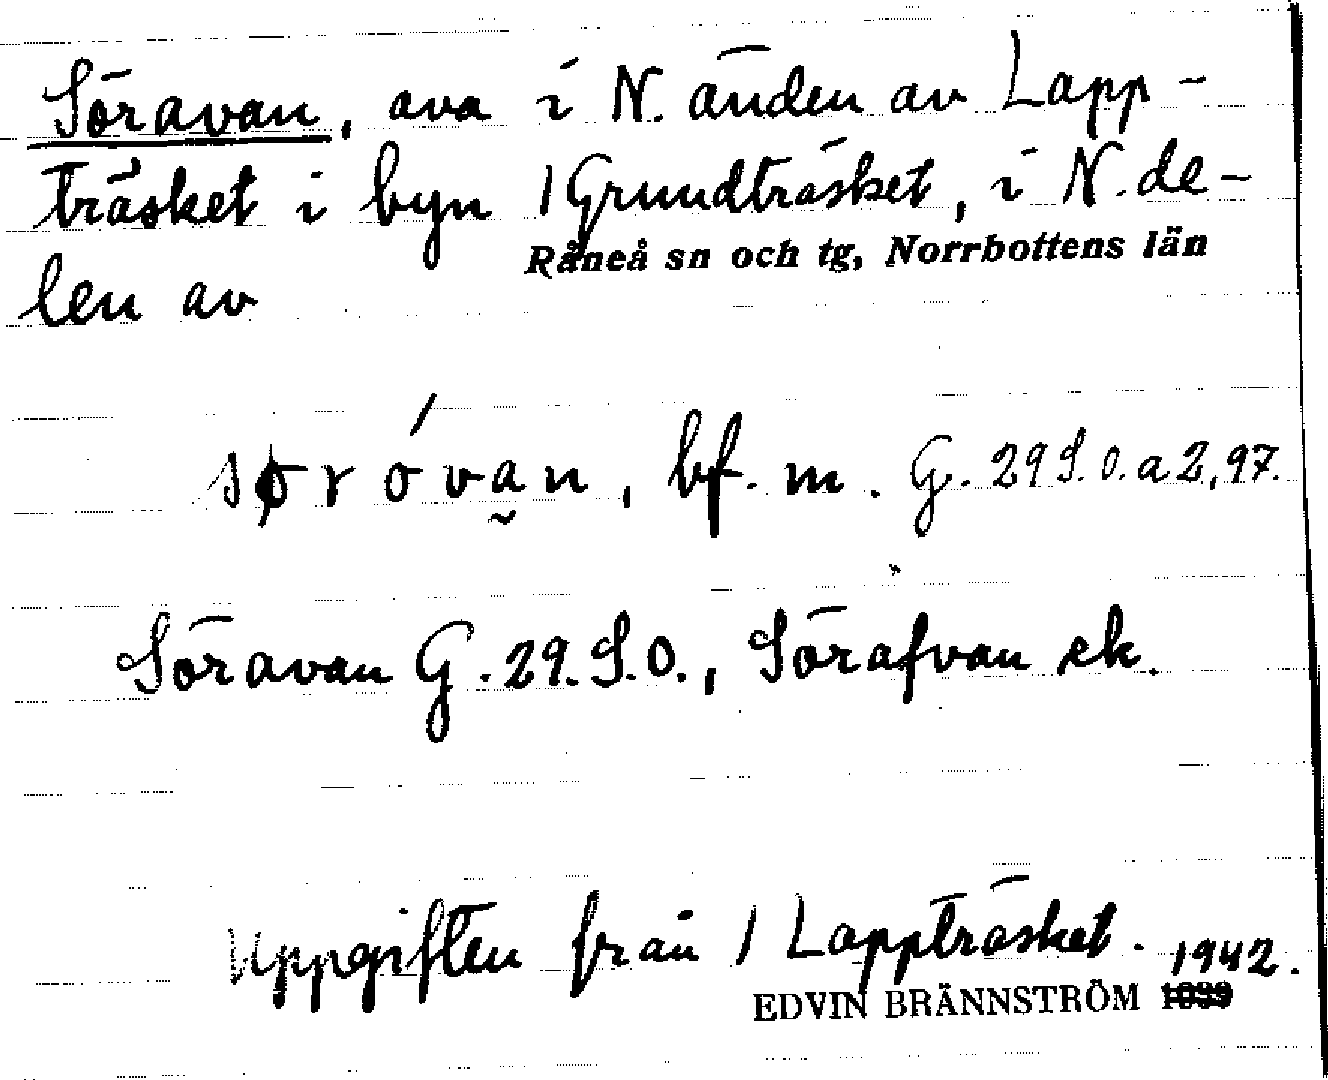 Söravan, ava i N. änden av Lapp-
träsket i byn / Grundträsket, i N. de-
Råneå sn och tg, Norrbottens län
len av
søróvan, bf. m. G. 29 S.O. a 2, 97.
Söravan G. 29. S.O., Sörafvan ek.
Uppgiften från / Lappträsket. 1942.
EDVIN BRÄNNSTRÖM 1939